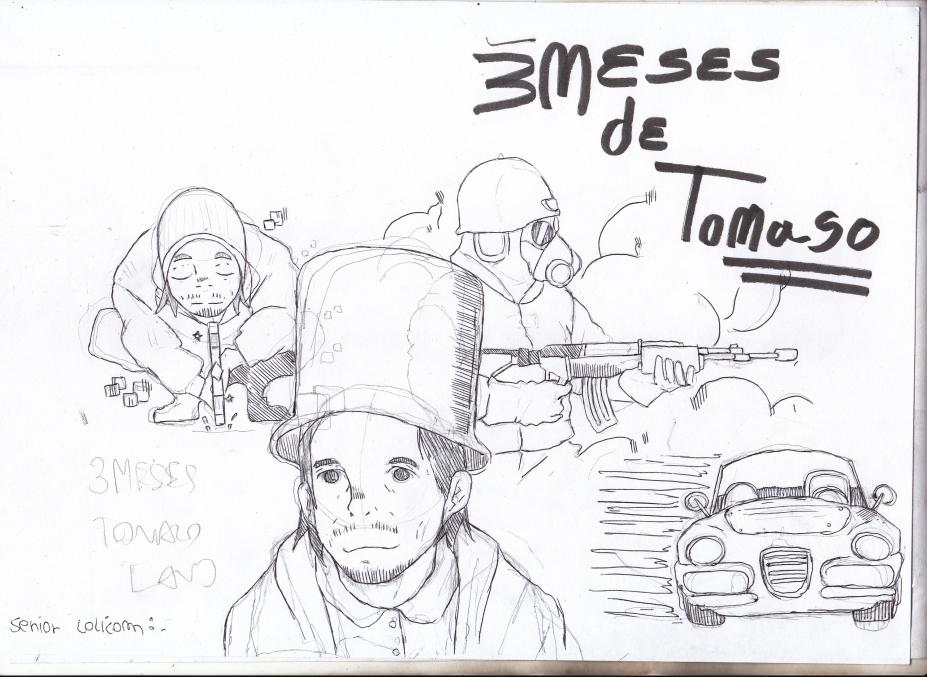 3 MESES
de
Tomaso
3 MESES
TOMASO
LAND
senior lolicom:.